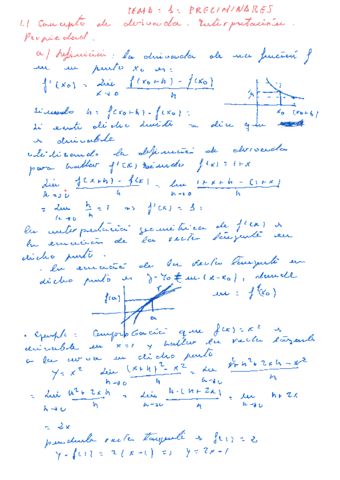 TEMA: 1: PRELIMINARES
1.) Concepto de derivada. Interpretación.
Propiedad.
a) Definición: la derivada de una función f
en un punto x₀ es:
f'(x₀) = lim f(x₀+h) - f(x₀) / h
x₀ (x₀+h)
siendo h = f(x₀+h) - f(x₀):
Si existe dicho límite se dice que
es derivable
utilizando la definición de derivada
para hallar f'(x) siendo f(x) = 1+x
lim h→0 f(x+h) - f(x) / h = lim h→0 1+x+h - (1+x) / h
= lim h→0 h/h = 1 => f'(x) = 1:
la interpretación geométrica de f'(x) es
la ecuación de la recta tangente en
dicho punto.
· la ecuación de la recta tangente en
dicho punto es y-y₀ = m·(x-x₀), donde
f(a) m = f'(x₀)
a
· Ejemplo: Comprobación que f(x) = x² es
derivable en x=1 y hallar la recta tangente
a la curva en dicho punto
y = x² lim h→0 (x+h)² - x² / h = lim h→0 x²+h²+2xh-x² / h
= lim h→0 h²+2xh / h = lim h→0 h·(h+2x) / h = lim h→0 h+2x
= 2x
pendiente recta tangente es f(1) = 2
y - f(1) = 2(x-1) => y = 2x-1